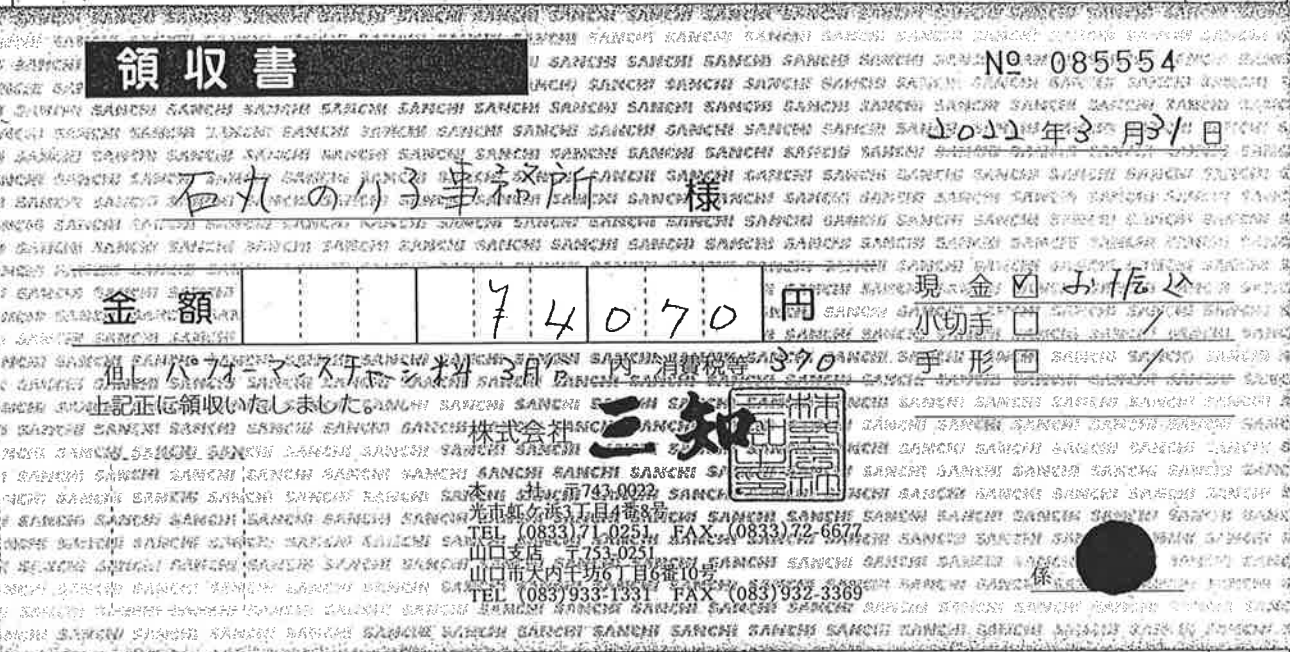 領収書
№ 085554
2022年3月31日
石丸のり子事務所 様
金額 74070 円
現金 ☑ お振込
小切手 □ /
手形 □ /
但し パフォーマンスチャージ料 3月分 内 消費税等 370
上記正に領収いたしました。
株式会社 三知
本社 〒743-0022
光市虹ケ浜3丁目4番8号
TEL (0833)71-0251 FAX (0833)72-6677
山口支店 〒753-0251
山口市大内千坊6丁目6番10号
TEL (083)933-1331 FAX (083)932-3369
係
SANCHI SANCHI SANCHI SANCHI